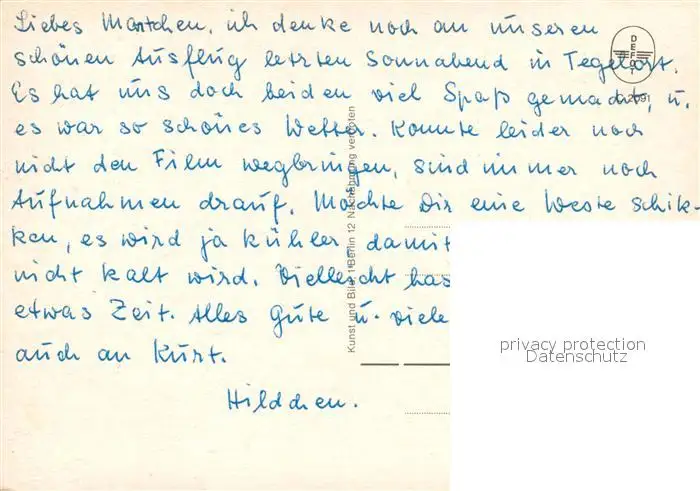 Liebes Martchen, ich denke noch an unseren
schönen Ausflug letzten Sonnabend in Tegelort.
Es hat uns doch beiden viel Spaß gemacht, u.
es war so schönes Wetter. Konnte leider noch
nicht den Film wegbringen, sind immer noch
Aufnahmen drauf. Möchte Dir eine Weste schik-
ken, es wird ja kühler, damit
nicht kalt wird. Vielleicht has
etwas Zeit. Alles Gute u. viele
auch an Kurt.
Hildchen.
DEFOT
Kunst und Bild 1 Berlin 12 Nachahmung verboten
privacy protection
Datenschutz